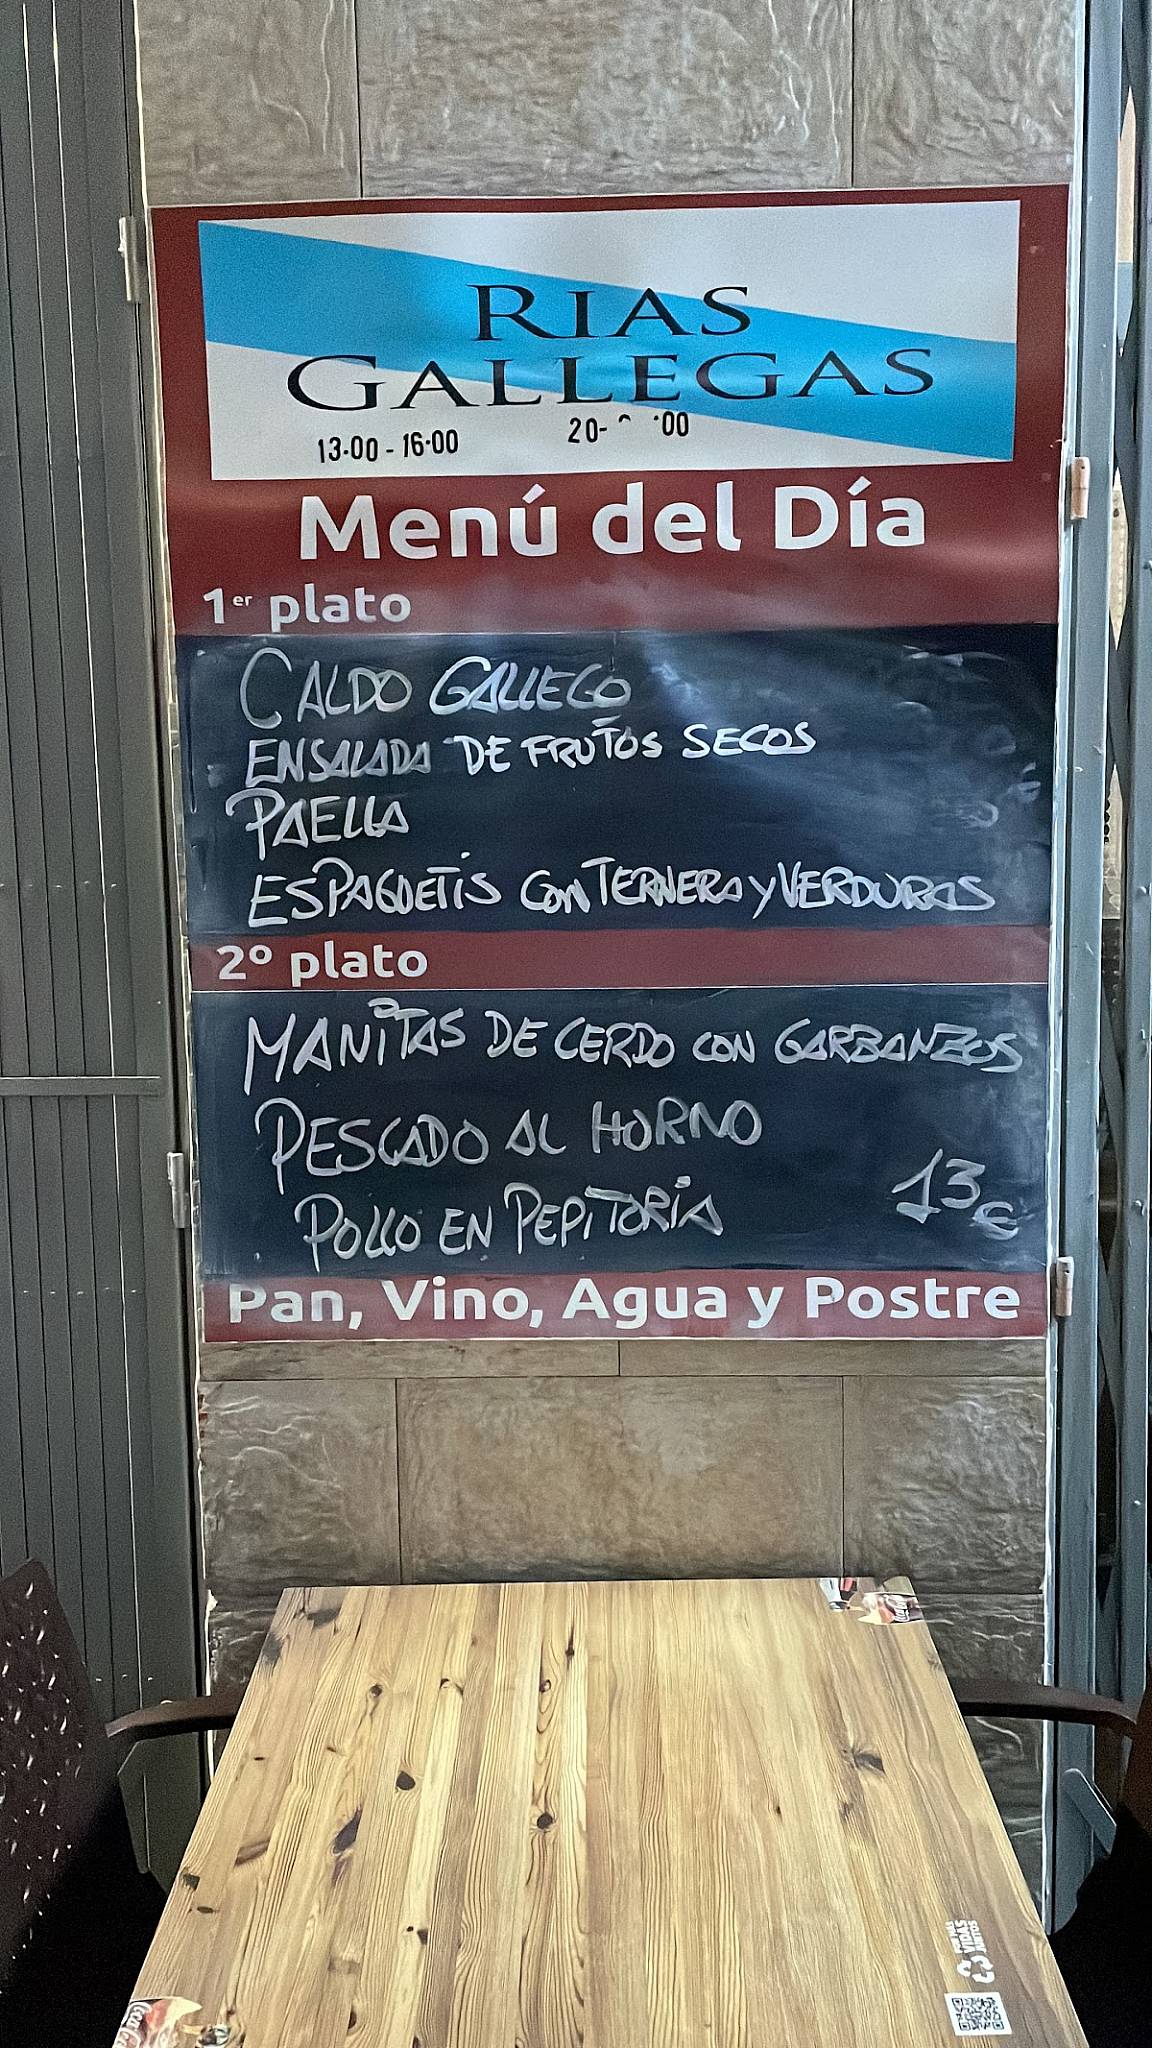 RIAS
GALLEGAS
13·00 - 16·00 20- 00
Menú del Día
1er plato
CALDO GALLEGO
ENSALADA DE FRUTOS SECOS
PAELLA
ESPAGUETIS CON TERNERA Y VERDURAS
2º plato
MANITAS DE CERDO CON GARBANZOS
PESCADO AL HORNO
POLLO EN PEPITORIA
13€
Pan, Vino, Agua y Postre
VIDAS